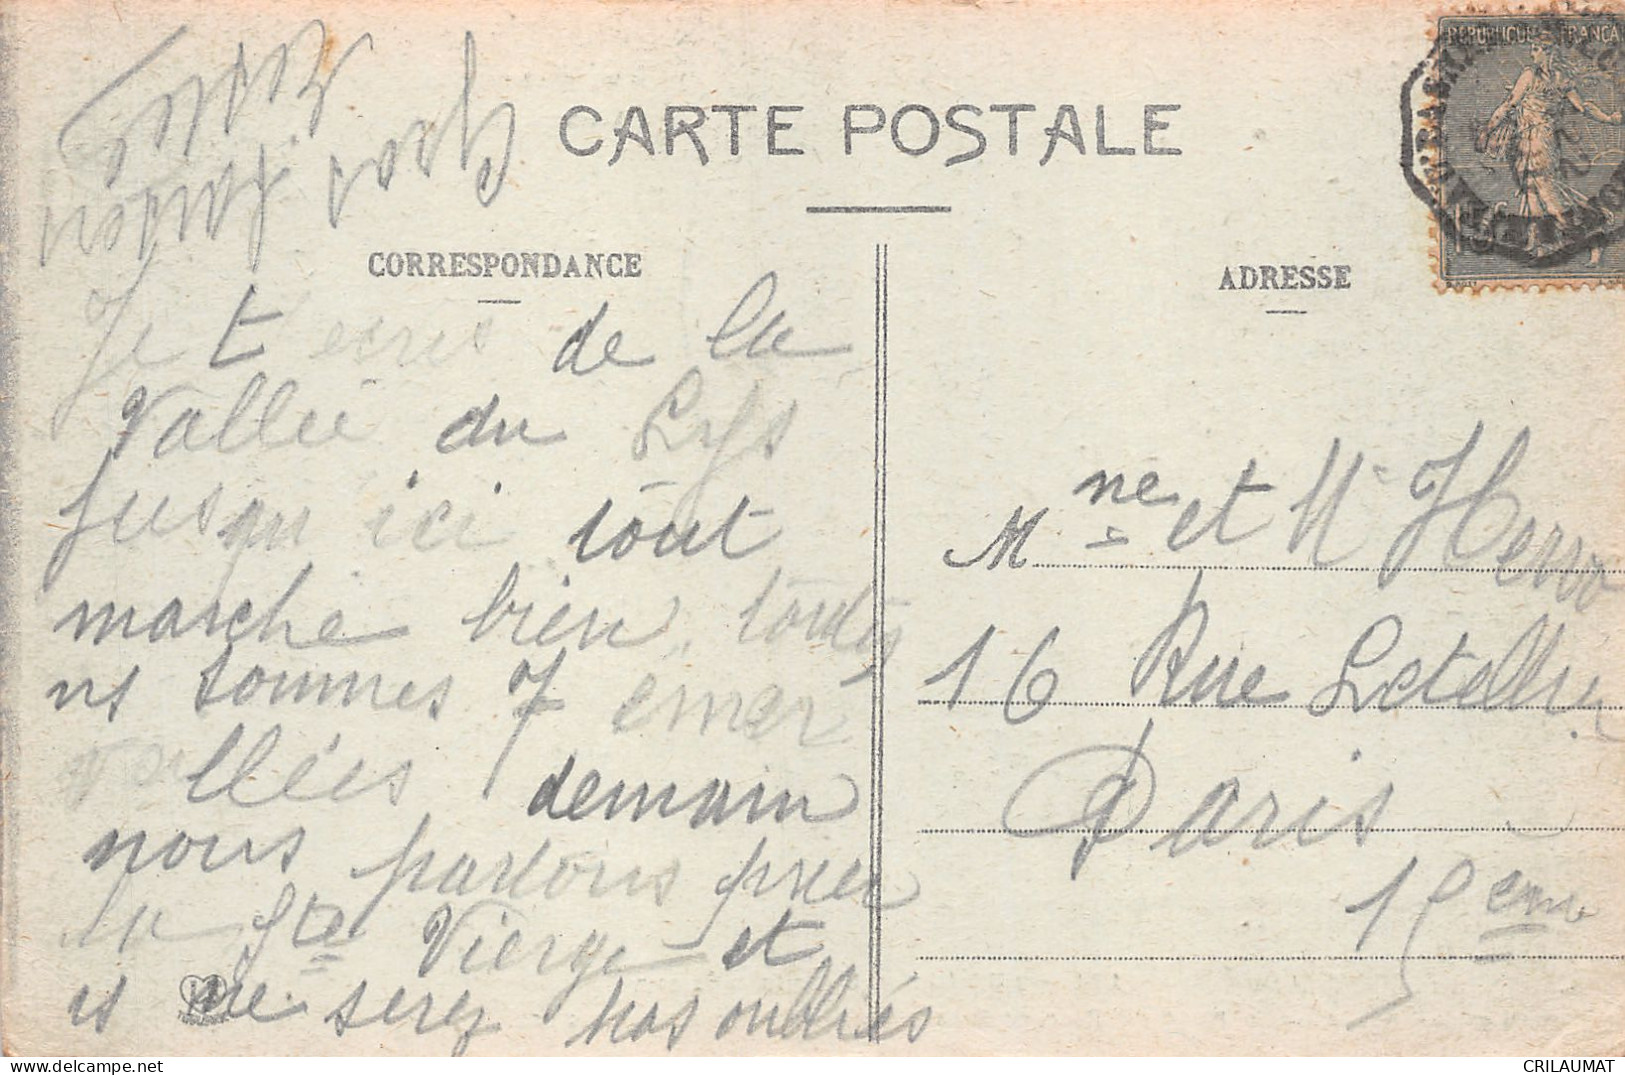 CARTE POSTALE
CORRESPONDANCE
ADRESSE
REPUBLIQUE FRANCA
Je t ecris de la
Vallée du Lys
Jusqu ici tout
marche bien. toutes
ns sommes 7 emer
veillées demain
nous partons prier
la Ste Vierge et
vs ne serez pas oubliés
Gros baisers
M ne et Mr Herro
16 Rue Letellier
Paris
15 eme
CRILAUMAT